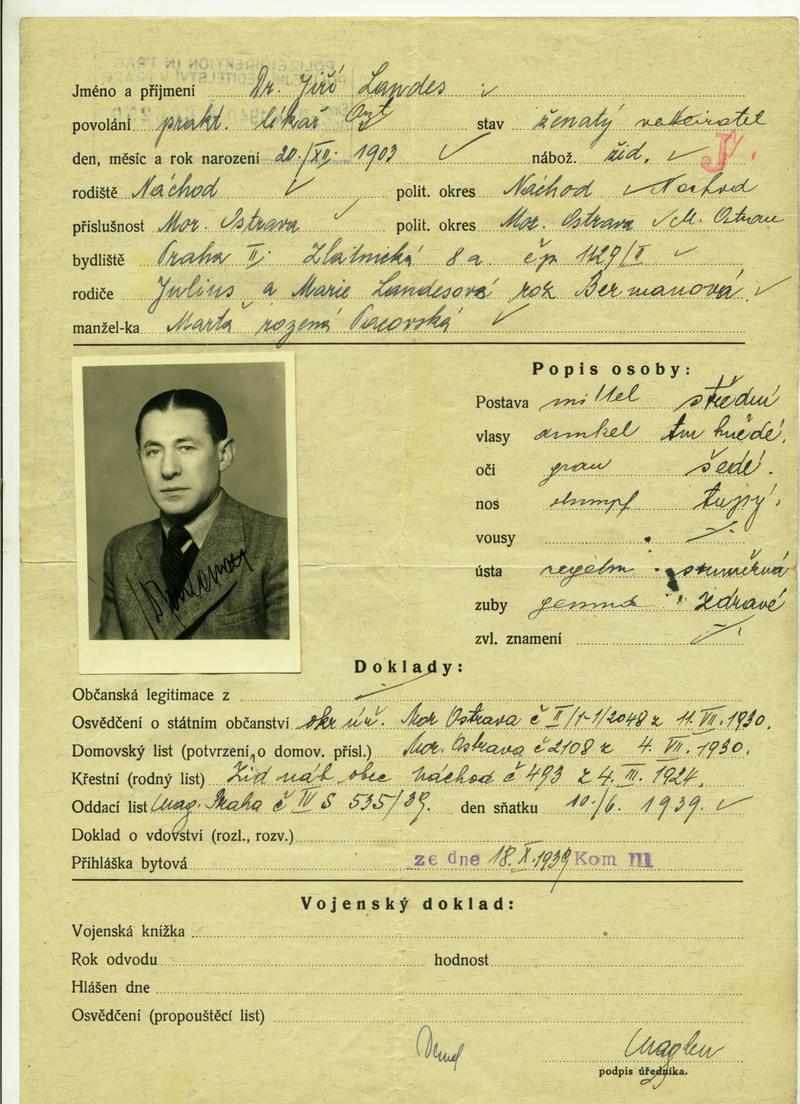 Jméno a příjmení Dr. Jiří Landes
povolání prakt. lékař Arzt stav ženatý verheiratet
den, měsíc a rok narození 20./XII. 1903 nábož. žid. J.
rodiště Náchod polit. okres Náchod Nachod
příslušnost Mor. Ostrava polit. okres Mor. Ostrava M. Ostrau
bydliště Praha II. Zlatnická 8a čp. 1129/II
rodiče Julius a Marie Landesová roz Bermanová
manžel-ka Marta rozená Pacovská
Popis osoby:
Postava mittel střední
vlasy dunkel tm hnědé.
oči grau šedé.
nos stumpf tupý.
vousy
ústa regelm souměrná
zuby gesund zdravé
zvl. znamení
Doklady:
Občanská legitimace z
Osvědčení o státním občanství okr úř. Mor Ostrava č II/1-1/2048 z 11. VII. 1930.
Domovský list (potvrzení o domov. přísl.) Mor. Ostrava č 2108 z 4. VII. 1930.
Křestní (rodný list) Žid náb obec Náchod č 493 z 4. III. 1924.
Oddací list Mag. Praha č IV S 535/39. den sňatku 10./6. 1939.
Doklad o vdovství (rozl., rozv.)
Přihláška bytová ze dne 18. X. 1939 Kom III
Vojenský doklad:
Vojenská knížka
Rok odvodu hodnost
Hlášen dne
Osvědčení (propouštěcí list)
podpis úředníka.